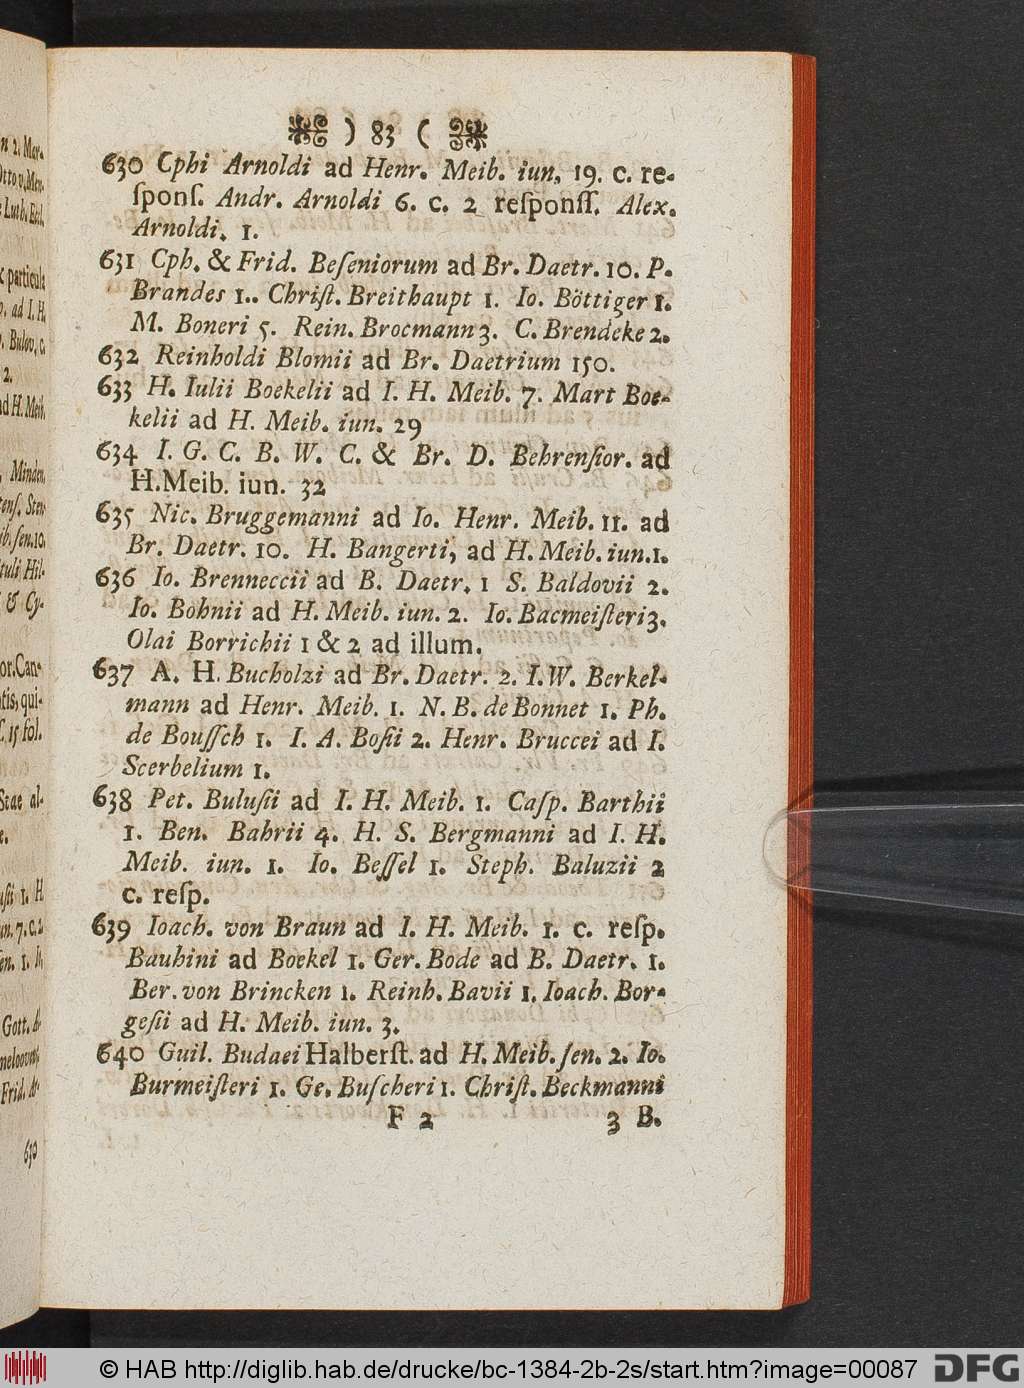 ) 83 (
630 Cphi Arnoldi ad Henr. Meib. iun, 19. c. re-
ſponſ. Andr. Arnoldi 6. c. 2 reſponſſ. Alex.
Arnoldi. 1.
631 Cph. & Frid. Beſeniorum ad Br. Daetr. 10. P.
Brandes 1.. Chriſt. Breithaupt 1. Io. Böttiger 1.
M. Boneri 5. Rein. Brocmann 3. C. Brendeke 2.
632 Reinholdi Blomii ad Br. Daetrium 150.
633 H. Iulii Boekelii ad I. H. Meib. 7. Mart Boe-
kelii ad H. Meib. iun. 29
634 I. G. C. B. W. C. & Br. D. Behrenſior. ad
H. Meib. iun. 32
635 Nic. Bruggemanni ad Io. Henr. Meib. 11. ad
Br. Daetr. 10. H. Bangerti, ad H. Meib. iun. 1.
636 Io. Brenneccii ad B. Daetr. 1 S. Baldovii 2.
Io. Bohnii ad H. Meib. iun. 2. Io. Bacmeiſteri 3.
Olai Borrichii 1 & 2 ad illum.
637 A. H. Bucholzi ad Br. Daetr. 2. I. W. Berkel-
mann ad Henr. Meib. 1. N. B. de Bonnet 1. Ph.
de Bouſſch 1. I. A. Boſii 2. Henr. Bruccei ad I.
Scerbelium 1.
638 Pet. Buluſii ad I. H. Meib. 1. Caſp. Barthii
1. Ben. Bahrii 4. H. S. Bergmanni ad I. H.
Meib. iun. 1. Io. Beſſel 1. Steph. Baluzii 2
c. reſp.
639 Ioach. von Braun ad I. H. Meib. 1. c. reſp.
Bauhini ad Boekel 1. Ger. Bode ad B. Daetr. 1.
Ber. von Brincken 1. Reinh. Bavii 1. Ioach. Bor-
geſii ad H. Meib. iun. 3.
640 Guil. Budaei Halberſt. ad H. Meib. ſen. 2. Io.
Burmeiſteri 1. Ge. Buſcheri 1. Chriſt. Beckmanni
F 2 3 B.
© HAB http://diglib.hab.de/drucke/bc-1384-2b-2s/start.htm?image=00087
DFG